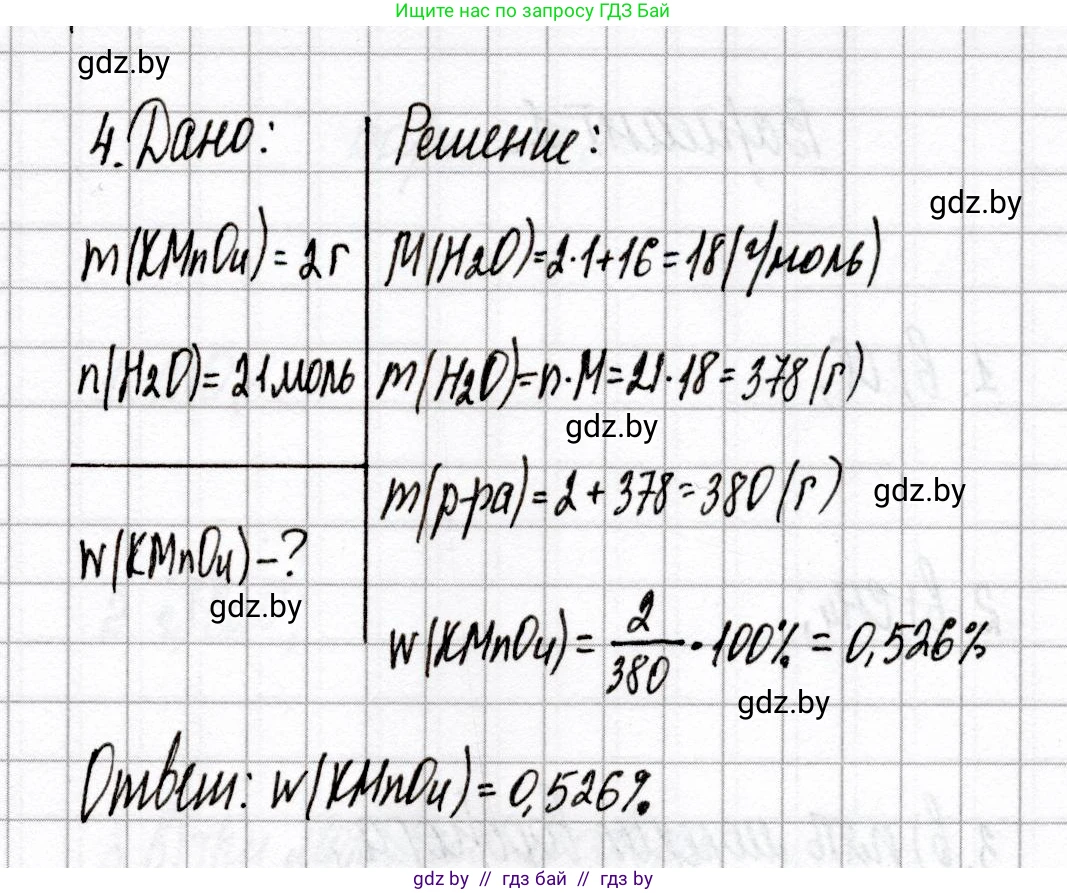 Ищите нас по запросу ГДЗ Бай
gdz.by
4. Дано: Решение:
gdz.by
m(KMnO4) = 2 г M(H2O) = 2·1+16 = 18 (г/моль)
n(H2O) = 21 моль m(H2O) = n·M = 21·18 = 378 (г)
gdz.by
m(р-ра) = 2 + 378 = 380 (г)
gdz.by
w(KMnO4) - ?
gdz.by
w(KMnO4) = 2/380 · 100% = 0,526%
gdz.by
Ответ: w(KMnO4) = 0,526%.
gdz.by // гдз бай // гдз by